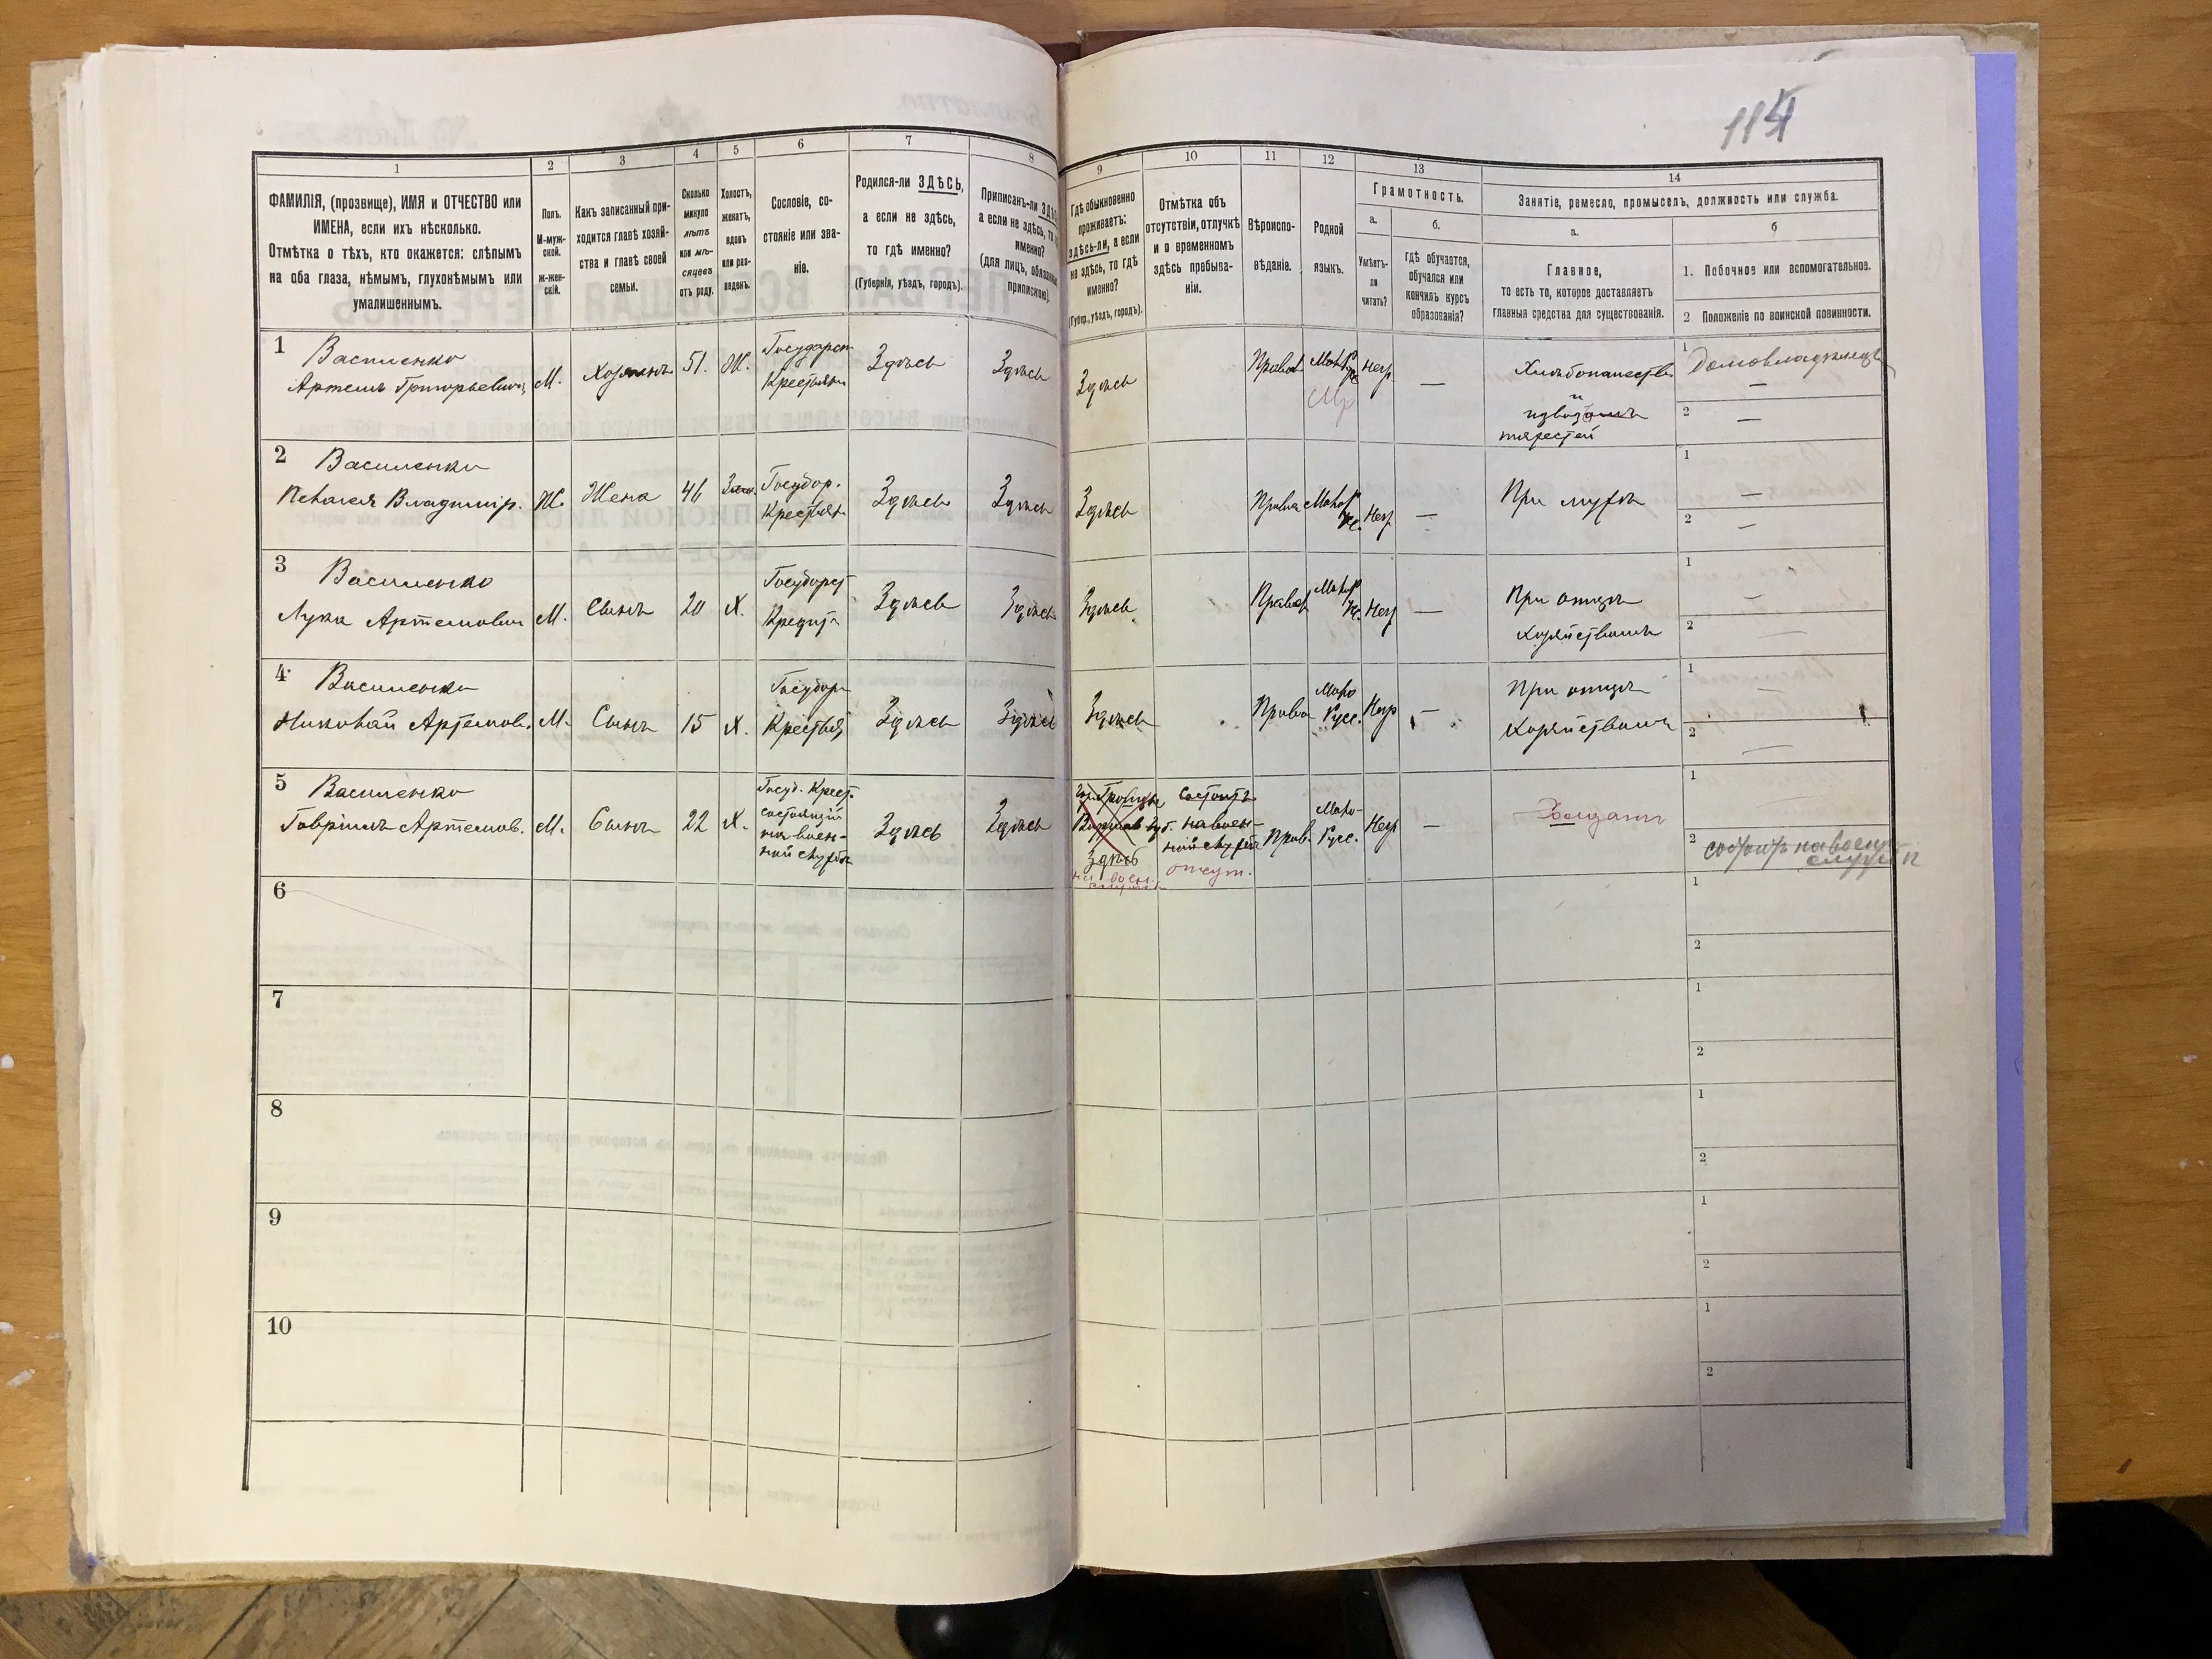 114
1
2
3
4
5
6
7
8
9
10
11
12
13
14
ФАМИЛІЯ, (прозвище), ИМЯ и ОТЧЕСТВО или
ИМЕНА, если ихъ нѣсколько.
Отмѣтка о тѣхъ, кто окажется: слѣпымъ
на оба глаза, нѣмымъ, глухонѣмымъ или
умалишеннымъ.
Полъ.
М-муж-
ской.
ж-жен-
скій.
Какъ записанный при-
ходится главѣ хозяй-
ства и главѣ своей
семьи.
Сколько
минуло
лѣтъ
или мѣ-
сяцевъ
отъ роду.
Холостъ,
женатъ,
вдовъ
или раз-
веденъ.
Сословіе, со-
стояніе или зва-
ніе.
Родился-ли ЗДѢСЬ,
а если не здѣсь,
то гдѣ именно?
(Губернія, уѣздъ, городъ).
Приписанъ-ли
а если не здѣсь, то
именно?
(для лицъ,
припискою).
Гдѣ обыкновенно
проживаетъ:
здѣсь-ли, а если
не здѣсь, то гдѣ
именно?
(Губер., уѣздъ, городъ).
Отмѣтка объ
отсутствіи, отлучкѣ
и о временномъ
здѣсь пребыва-
ніи.
Вѣроиспо-
вѣданіе.
Родной
языкъ.
Грамотность.
а.
Умѣетъ-
ли
читать?
б.
гдѣ обучается,
обучался или
кончилъ курсъ
образованія?
Занятіе, ремесло, промыселъ, должность или служба.
а.
Главное,
то есть то, которое доставляетъ
главныя средства для существованія.
б
1. Побочное или вспомогательное.
2 Положеніе по воинской повинности.
1
Василенко
Артемъ Григорьевичъ
М.
Хозяинъ
51.
Ж.
Государст
Крестьян
Здѣсь
Здѣсь
Здѣсь
Правос
Негр
—
Хлѣбопашество
и
тяжестей
1
Домовладѣлецъ
—
2
—
2
Василенко
Пелагея Владимір.
Ж.
Жена
46
Госудор.
Крестьян
Здѣсь
Здѣсь
Здѣсь
Право
Негр
—
При мужѣ
1
—
2
—
3
Василенко
Лука Артемович
М.
Сынъ
20
Х.
Здѣсь
Здѣсь
Здѣсь
Правос
Негр
—
При отцѣ
Хозяйствомъ
1
—
2
—
4
Василенко
Николай Артемов.
М.
Сынъ
15
Х.
Госудор
Крестья
Здѣсь
Здѣсь
Здѣсь
Право
Мало
Русс.
Негр
—
При отцѣ
Хозяйствомъ
1
—
2
—
5
Василенко
Гавріилъ Артемов.
М.
Сынъ
22
Х.
Госуд. Крест.
состоящій
на воен-
ной службѣ
Здѣсь
Здѣсь
Здѣсь
на воен.
службѣ
состоитъ
на воен-
ной службѣ
отсут.
Прав.
Мало-
Русс.
Негр
—
Солдатъ
1
2
состоитъ на военн
службѣ
6
1
2
7
1
2
8
1
2
9
1
2
10
1
2